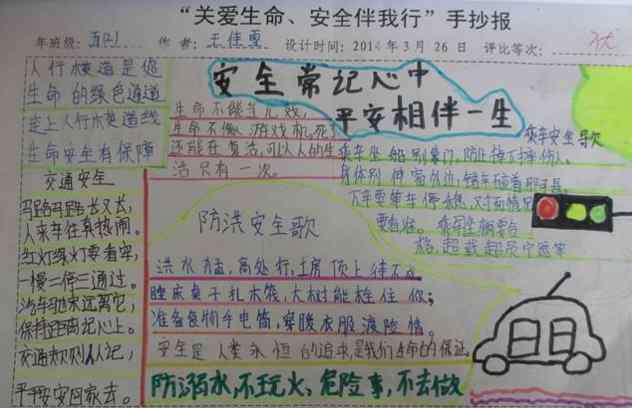 “关爱生命、安全伴我行”手抄报
年班级: 作者:王佳 设计时间:2014年3月26日 评比等次: 优
安全常记心中
平安相伴一生
人行横道是您
生命的绿色通道
走上人行横道线
生命安全有保障
交通安全
马路马路长又长,
人来车往真热闹。
红灯绿灯要看牢,
一慢二停三通过。
汽车 远离它,
保持距离记心上。
交通规则人人记,
平平安安回家去。
生命不能当儿戏,
生命不像游戏机,死了
还能在复活,可以人的生
活只有一次。
乘车安全导次
乘车坐船别靠门,防止掉下摔伤人。
身体别伸窗外边,
下车要等车停稳,
要看准。乘车坐船要
格,超载超员
防洪安全歌
洪水猛,高处行,土房顶上待不成。
睡床桌子扎木筏,大树能拴住你;
准备食物手电筒,穿暖衣服渡险情。
安全是人类永恒的追求,是我们生命的保证。
防溺水,不玩火,危险事,不去做